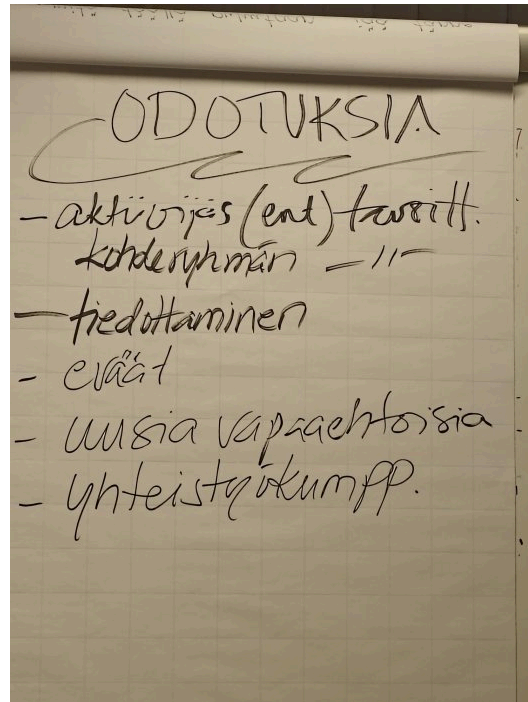 ODOTUKSIA
- aktiivijäs (ent) tavoitt.
kohderyhmän -"-
- tiedottaminen
- eväät
- uusia vapaaehtoisia
- yhteistyökumpp.